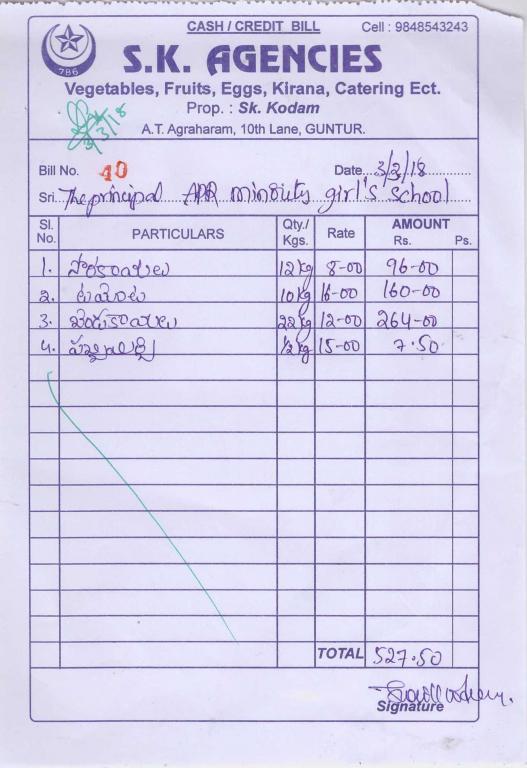 CASH / CREDIT BILL Cell : 9848543243
786
S.K. AGENCIES
Vegetables, Fruits, Eggs, Kirana, Catering Ect.
Prop. : Sk. Kodam
3/3/18
A.T. Agraharam, 10th Lane, GUNTUR.
Bill No. 40 Date 3/3/18
Sri. The principal APR minority girl's school
Sl. No. PARTICULARS Qty./ Kgs. Rate AMOUNT Rs. Ps.
1. సొరకాయలు 12 kg 8-00 96-00
2. టమాటాలు 10 kg 16-00 160-00
3. 22 kg 12-00 264-00
4. 1/2 kg 15-00 7.50
TOTAL 527.50
Signature